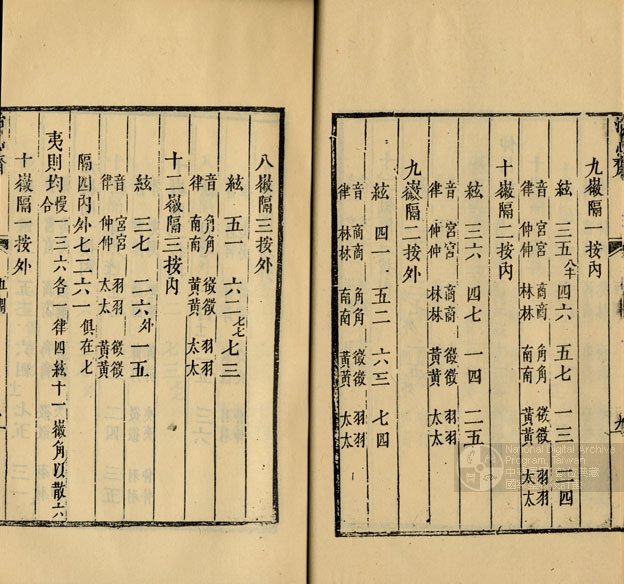 九徽隔一按内
絃 三五 八半 四六 五七 一三 二四
音 宮宮 商商 角角 徵徵 羽羽
律 仲仲 林林 南南 黃黃 太太
十徽隔二按内
絃 三六 四七 一四 二五
音 宮宮 商商 徵徵 羽羽
律 仲仲 林林 黃黃 太太
九徽隔二按外
絃 四一 五二 六三 七四
音 商商 角角 徵徵 羽羽
律 林林 南南 黃黃 太太
八徽隔三按外
絃 五一 六二 七七 七三
音 角角 徵徵 羽羽
律 南南 黃黃 太太
十二徽隔三按内
絃 三七 二六 外 一五
音 宮宮 羽羽 徵徵
律 仲仲 太太 黃黃
隔四内外七二六一 俱在七
夷則均 慢一三六各一律四絃十一徽角以散六合
十徽隔一按外
National Digital Archives
Program, Taiwan